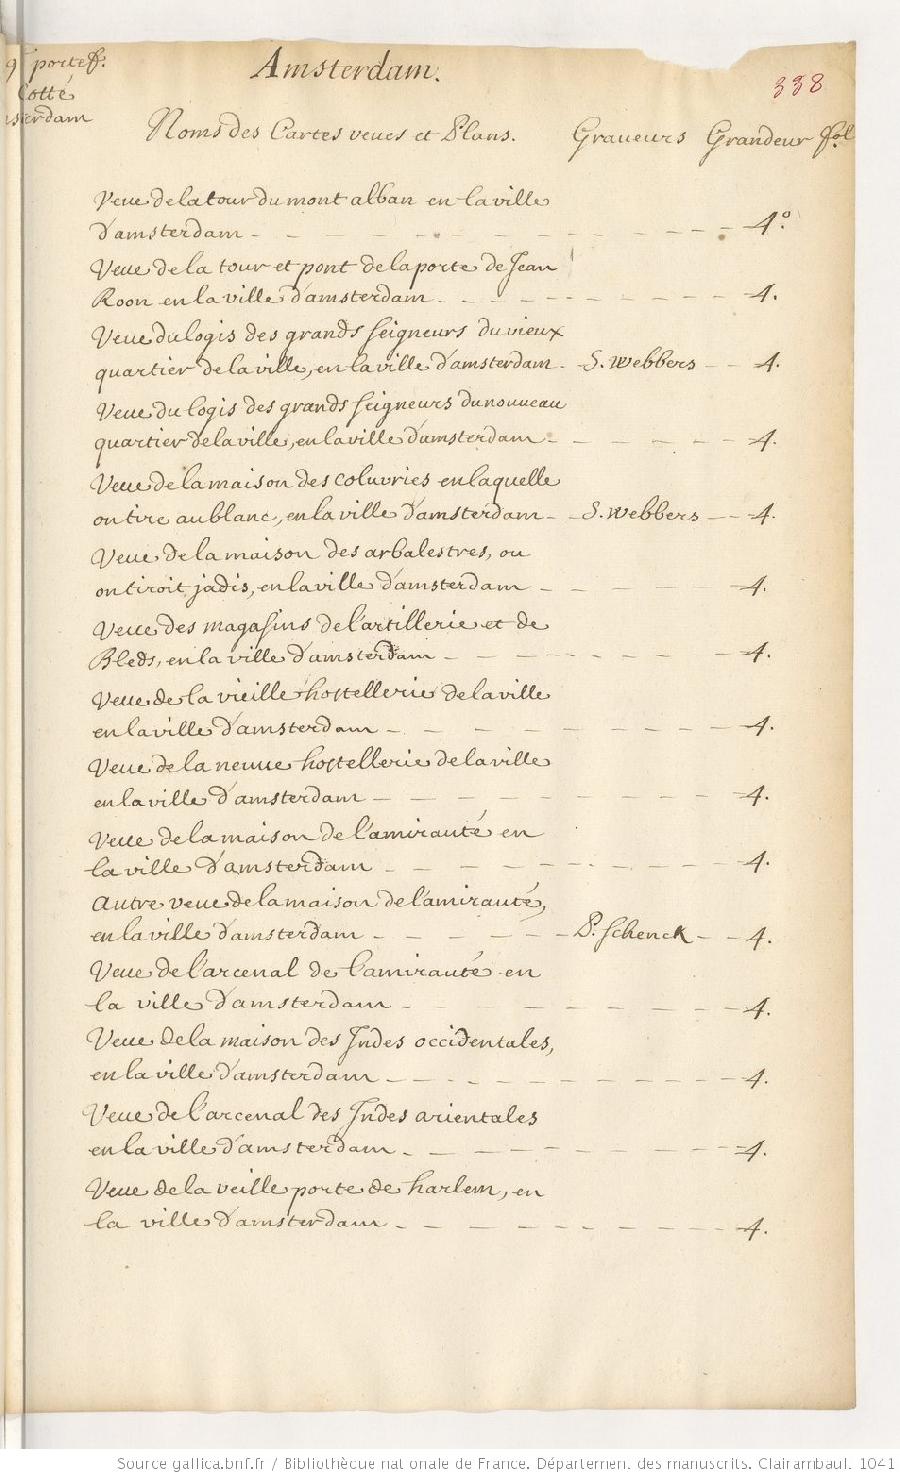 9 portef.
Cotté
Amsterdam.
338
Noms des Cartes veues et Plans. Graueurs Grandeur fol
Veue de la tour du mont alban en la ville
D'amsterdam - - - - - - - 4.°
Veue de la tour et pont de la porte de Jean
Roon en la ville d'amsterdam - - - - - - 4.
Veue du logis des grands seigneurs du vieux
quartier de la ville, en la ville d'amsterdam - S. Webbers - - 4.
Veue du logis des grands seigneurs du nouueau
quartier de la ville, en la ville d'amsterdam - - - - - 4.
Veue de la maison des coluvries en laquelle
on tire au blanc, en la ville d'amsterdam - S. Webbers - - 4.
Veue de la maison des arbalestres, ou
on tiroit jadis, en la ville d'amsterdam - - - - - 4.
Veue des magasins de l'artillerie et de
Bleds, en la ville d'amsterdam - - - - - - 4.
Veue de la vieille hostellerie de la ville
en la ville d'amsterdam - - - - - - - 4.
Veue de la neuue hostellerie de la ville
en la ville d'amsterdam - - - - - - - 4.
Veue de la maison de l'amirauté en
la ville d'amsterdam - - - - - - - 4.
Autre veue de la maison de l'amirauté,
en la ville d'amsterdam - - - - - P. Schenck - - 4.
Veue de l'arcenal de l'amirauté en
la ville d'amsterdam - - - - - - - 4.
Veue de la maison des Indes occidentales,
en la ville d'amsterdam - - - - - - - 4.
Veue de l'arcenal des Indes orientales
en la ville d'amsterdam - - - - - - - 4.
Veue de la veille porte de harlem, en
la ville d'amsterdam - - - - - - - 4.
Source gallica.bnf.fr / Bibliothèque nationale de France. Département des manuscrits. Clairambault 1041